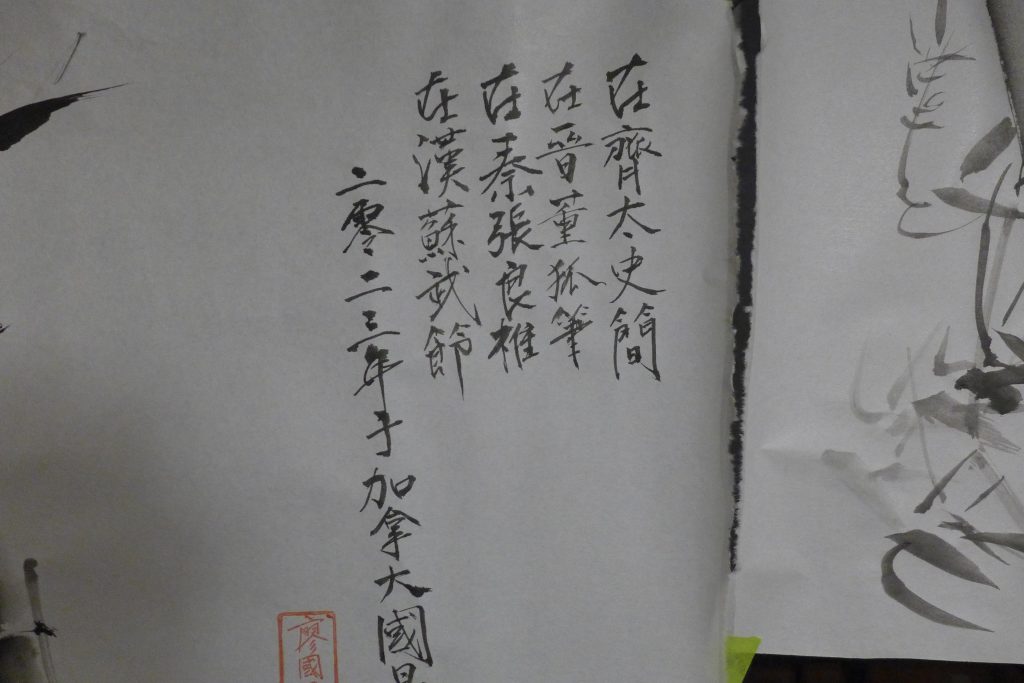 在齊太史簡
在晉董狐筆
在秦張良椎
在漢蘇武節
二零二三年于加拿大國
廖國